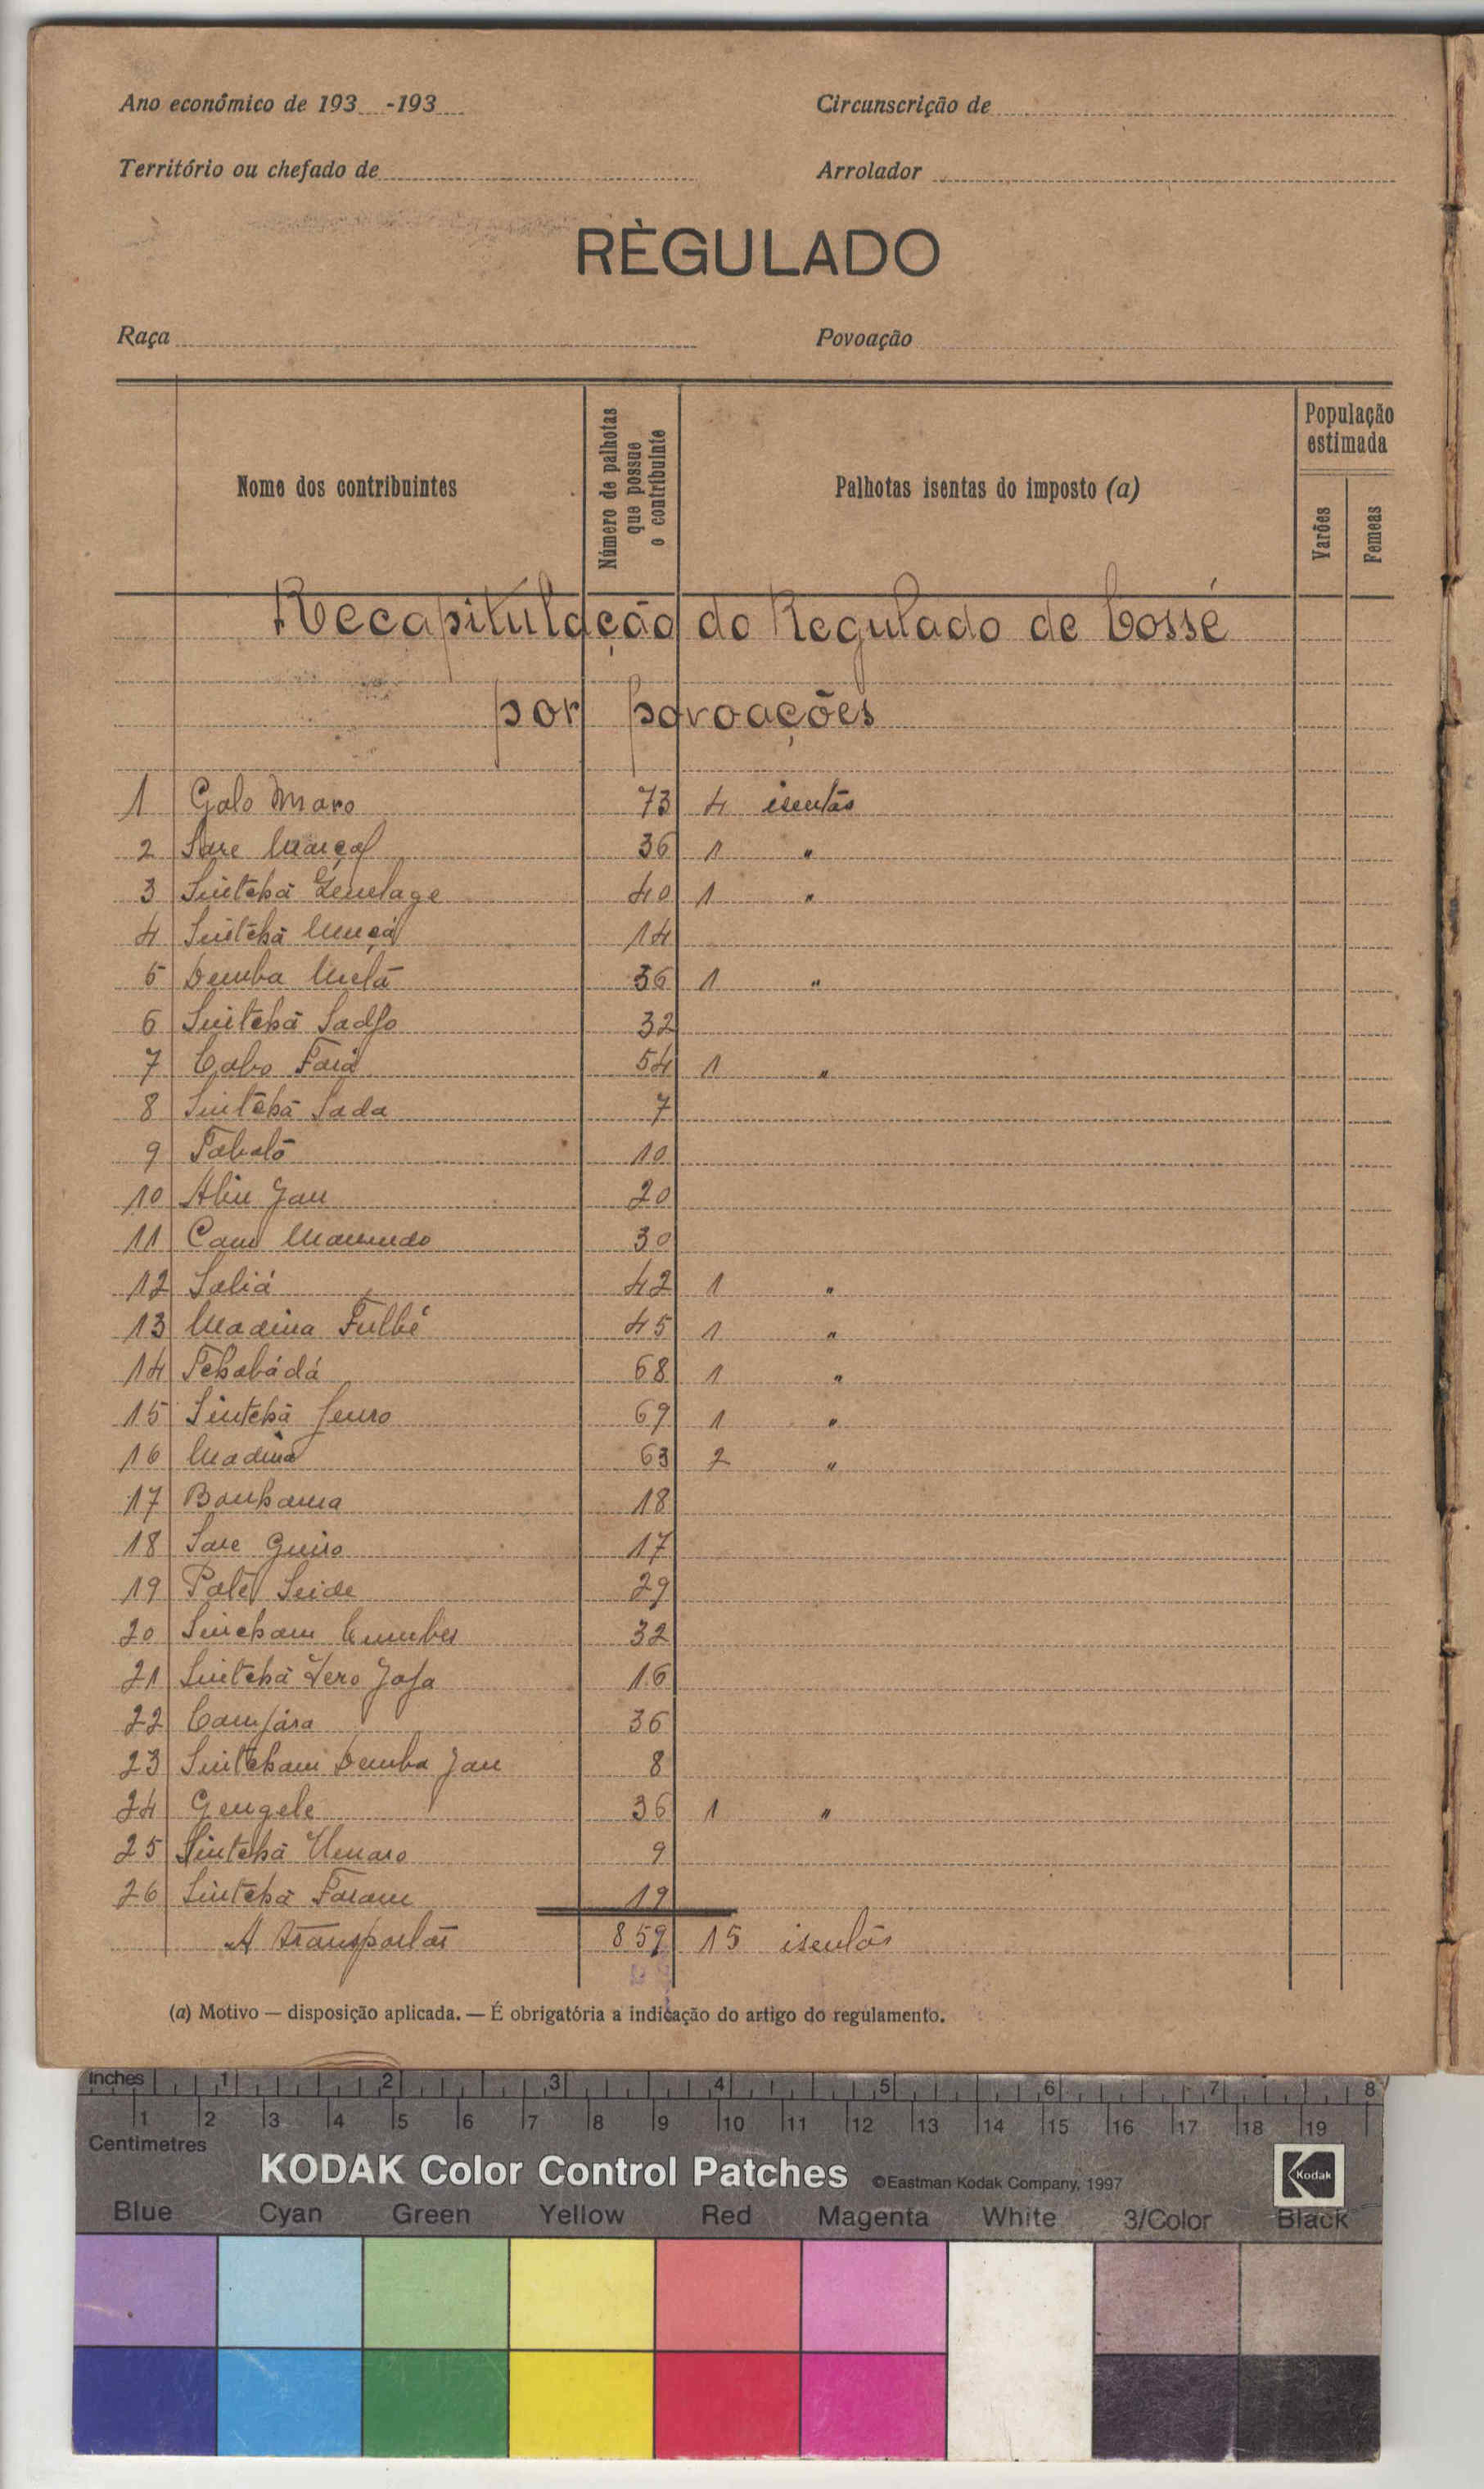 Ano económico de 193 -193
Circunscrição de
Território ou chefado de
Arrolador
RÈGULADO
Raça
Povoação
Nome dos contribuintes
Número de palhotas que possue o contribuinte
Palhotas isentas do imposto (a)
População estimada
Varões
Femeas
Recapitulação do Regulado de Cossé
por povoações
1 Galo Maro 73 4 isentas
2 Sare 36 1 "
3 Sintchã 40 1 "
4 Sintchã 14
5 Demba 36 1 "
6 Sintchã 32
7 54 1 "
8 Sintchã Sada 7
9 10
10 Aliu Jau 20
11 Mamudo 30
12 Saliá 42 1 "
13 Madina Fulbé 45 1 "
14 Tchabádá 68 1 "
15 Sintchã 69 1 "
16 Madina 63 2 "
17 18
18 Sare Guiro 17
19 Paté Seide 29
20 32
21 Sintchã 16
22 Camjára 36
23 Sintcham Demba Jau 8
24 Gengele 36 1 "
25 Sintchã Umaro 9
26 Sintchã Faram 19
A transportar 859 15 isentas
(a) Motivo — disposição aplicada. — É obrigatória a indicação do artigo do regulamento.
Inches 1 2 3 4 5 6 7 8
1 2 3 4 5 6 7 8 9 10 11 12 13 14 15 16 17 18 19
Centimetres
KODAK Color Control Patches ©Eastman Kodak Company, 1997 Kodak
Blue Cyan Green Yellow Red Magenta White 3/Color Black